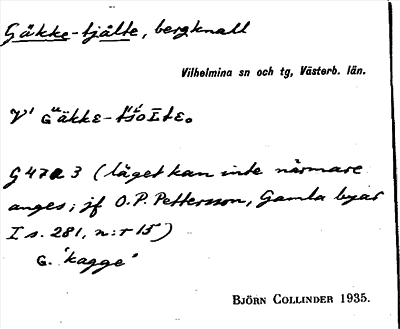 Gäkke-tjålte, bergknall
Vilhelmina sn och tg, Västerb. län.
G 47a 3 (läget kan inte närmare
anges; jf O.P. Pettersson, Gamla byar
I s. 281, n:r 15)
G. 'kagge'
BJÖRN COLLINDER 1935.